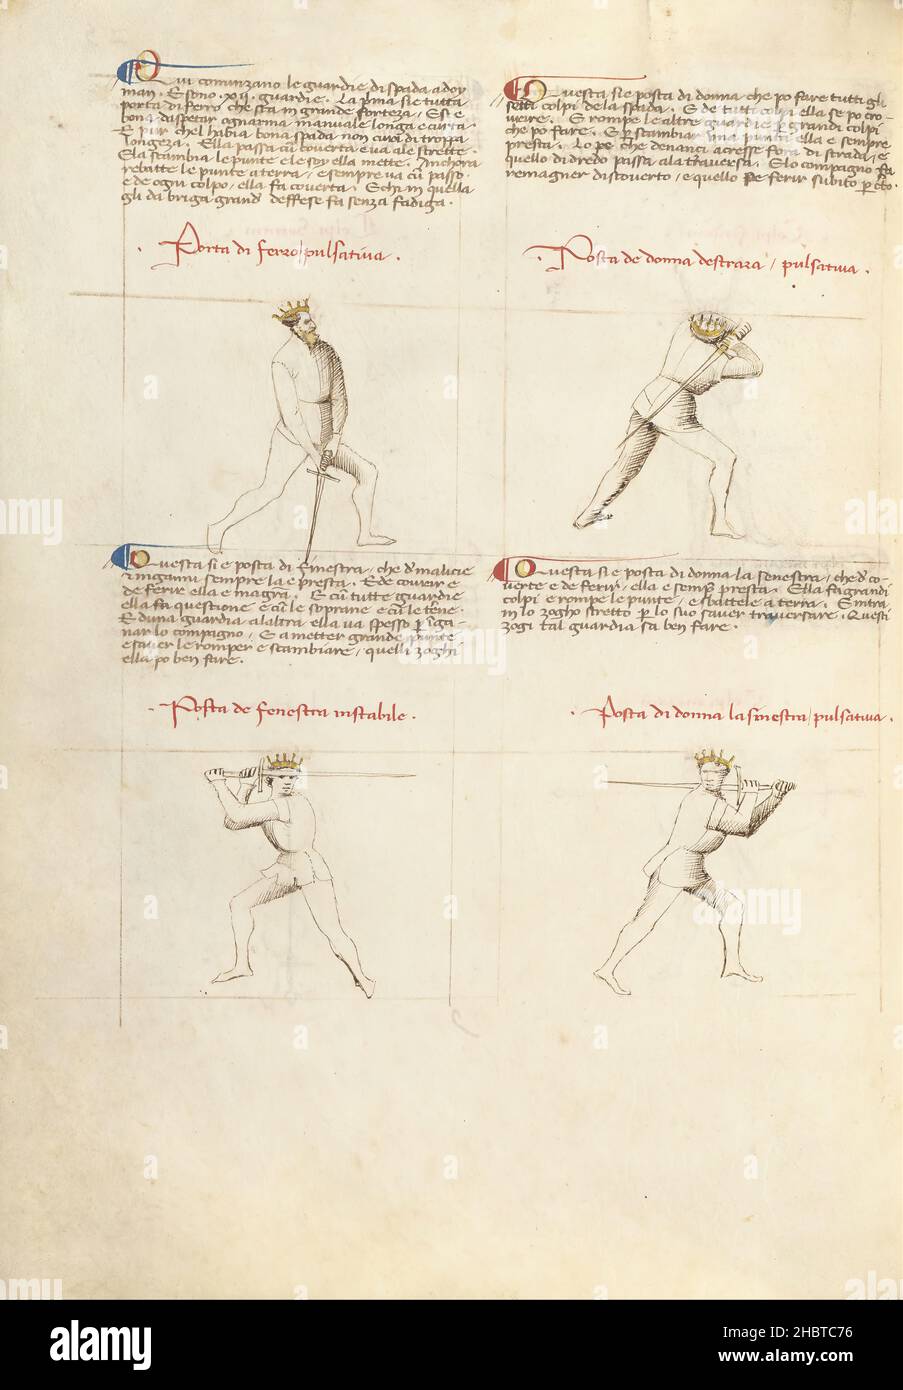 Qui cominzano le guardie di spada a doy
man. E sono .xii. guardie. La p'ma si e tutta
porta di ferro che sta in grande forteza, E si e
bon d'aspetar ogn'arma manuale longa e curta.
E pur ch'el habia bona spada non cura di troppa
longeza. Ella passa cu coverta e va ale strette.
E la scambia le punte e le soy ella mette. Anchora
rebatte le punte a terra, e sempre va cu passo
e de ogni colpo, ella fa coverta. E chi in quella
gli da briga grand' deffese fa senza fadiga.
Porta di ferro, pulsativa.
Questa si e posta di donna che po fare tutti gli
setti colpi de la spada. E de tutti colpi ella se po cro-
vrire. E rompe le altre guardie p grandi colpi
che po fare. E p scambiar una punta ella e sempre
presta. Lo pe che denanci acresse fora di strada, e
quello di dredo passa ala traversa. E lo compagno fa
remagner discoverto, e quello po ferir subito p certo.
Posta de donna destraza, pulsativa.
Questa si e posta di finestra, che d' malicie
e ingani sempre la e presta. E de covrir e
de ferire ella e magra. E cu tutte guardie
ella fa questione e cu le soprane e cu le tene.
E d'una guardia a l'altra ella va spesso p inga-
nar lo compagno, E a metter grande punte
e saver le romper e scambiare, quelli zoghi
ella po ben fare.
Posta de fenestra instabile.
Questa si e posta di donna la senestra, che d' co-
verte e de ferir, ella e semp presta. Ella fa grandi
colpi e rompe le punte, e sbattele a terra. E intra
in lo zogho stretto p lo suo saver traversare. Questi
zogi tal guardia sa ben fare.
Posta di donna la sinestra, pulsativa.
alamy
Image ID: 2HBTC76
www.alamy.com